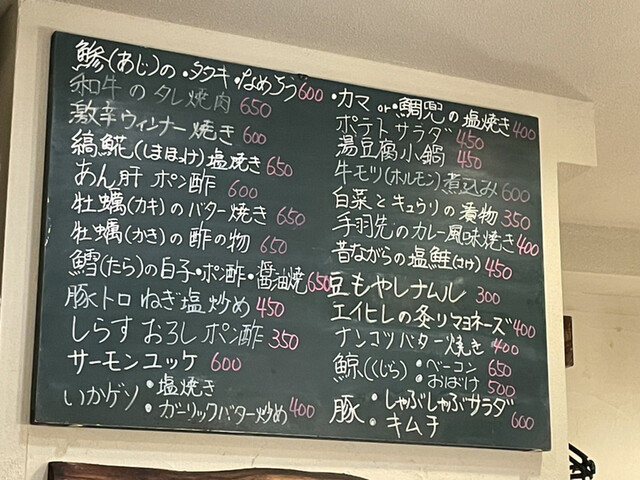 鯵(あじ)の・タタキ・なめろう600
和牛のタレ焼肉 650
激辛ウィンナー焼き 600
縞𩸽(しまほっけ)塩焼き 650
あん肝 ポン酢 600
牡蠣(カキ)のバター焼き 650
牡蠣(かき)の酢の物 650
鱈(たら)の白子・ポン酢・醤油焼650
豚トロ ねぎ塩炒め 450
しらす おろし ポン酢 350
サーモンユッケ 600
いかゲソ・塩焼き
・ガーリックバター炒め 400
・カマ or・鯛兜の塩焼き400
ポテトサラダ 450
湯豆腐小鍋 450
牛モツ(ホルモン)煮込み600
白菜ときゅうりの漬物 350
手羽先のカレー風味焼き400
昔ながらの塩鮭(さけ)450
豆もやしナムル 300
エイヒレの炙りマヨネーズ400
ナンコツバター焼き 400
鯨(くじら)・ベーコン 650
・おばけ 500
豚・しゃぶしゃぶサラダ 600
・キムチ